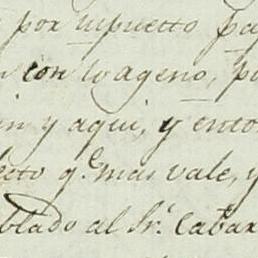 por supuesto pa
con lo ageno, po
in y aqui, y enton
ecto q.e mas vale, y
blado al Sr. Cabar